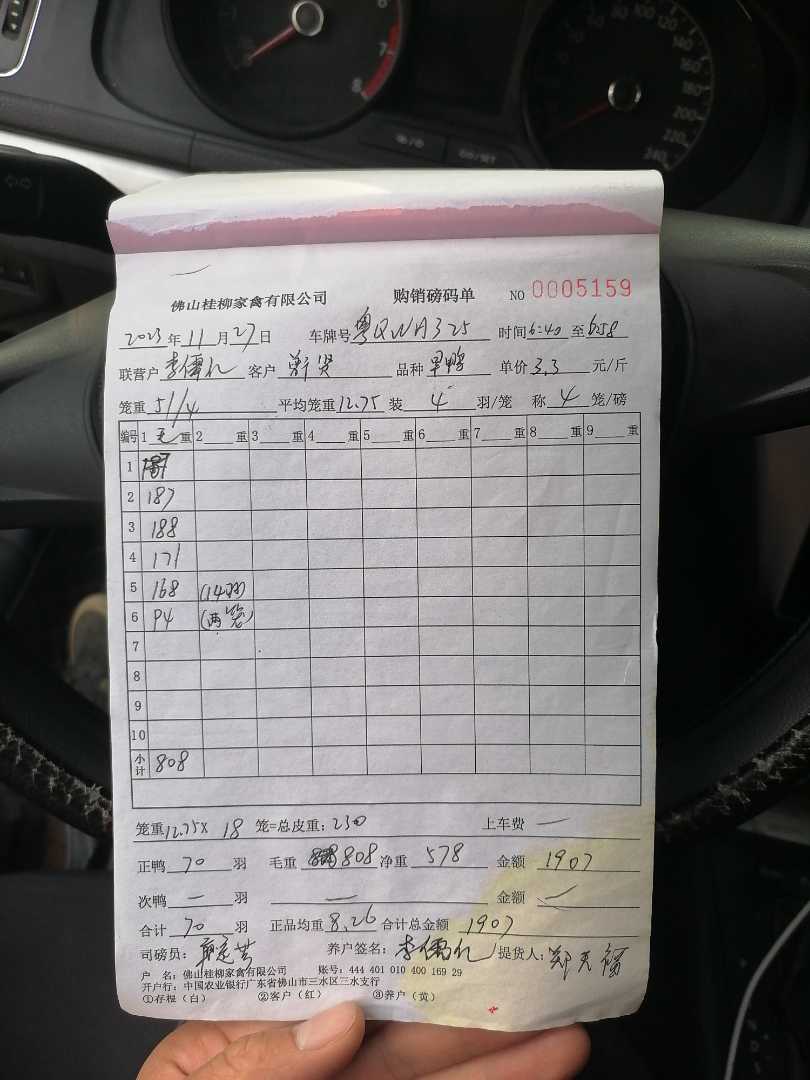 佛山桂柳家禽有限公司 购销磅码单 NO 0005159
2023年11月27日 车牌号 粤QWA325 时间6:40至658
联营户 李儒仁 客户 贤 品种 旱鸭 单价3.3元/斤
笼重51/4 平均笼重12.75 装4羽/笼 称4笼/磅
编号 1毛重 2重 3重 4重 5重 6重 7重 8重 9重
1
2 187
3 188
4 171
5 168 (14羽)
6 94 (两笼)
7
8
9
10
小计 808
笼重12.75×18笼=总皮重:230 上车费 一
正鸭70羽 毛重808 净重578 金额1907
次鸭一羽 一 金额 一
合计70羽 正品均重8.26 合计总金额1907
司磅员: 养户签名:李儒仁 提货人:郑天
户 名:佛山桂柳家禽有限公司 账号:444 401 010 400 169 29
开户行:中国农业银行广东省佛山市三水区三水支行
①存根(白) ②客户(红) ③养户(黄)